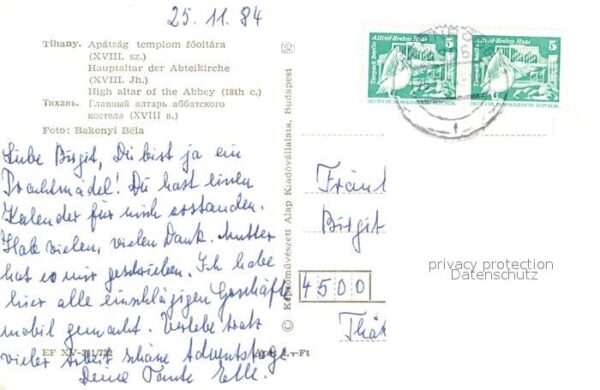 25. 11. 84
Tihany. Apátság templom főoltára
(XVIII. sz.)
Hauptaltar der Abteikirche
(XVIII. Jh.)
High altar of the Abbey (18th c.)
Тихань. Главный алтарь аббатского
костела (XVIII в.)
Foto: Bakonyi Béla
Liebe Birgit, Du bist ja ein
Prachtmädel! Du hast einen
Kalender für mich erstanden.
Hab vielen, vielen Dank. Mutter
hat es mir geschrieben. Ich habe
hier alle einschlägigen Geschäfte
mobil gemacht. Verlebe trotz
vieler Arbeit schöne Adventstage.
Deine Tante Elle.
EF XV-
-Ft
© Képzőművészeti Alap Kiadóvállalata, Budapest
Alfred-Brehm-Haus 5
Tierpark Berlin
DEUTSCHE DEMOKRATISCHE REPUBLIK
Alfred-Brehm-Haus 5
Tierpark Berlin
DEUTSCHE DEMOKRATISCHE REPUBLIK
Fräul
Birgit
4500
privacy protection
Datenschutz